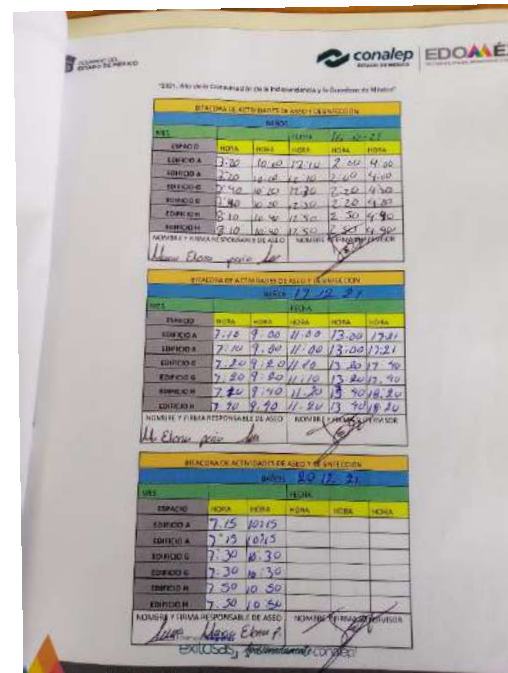 GOBIERNO DEL
ESTADO DE MÉXICO
conalep
ESTADO DE MÉXICO
EDOMÉX
"2021, Año de la Consumación de la Independencia y la Grandeza de México"
BITACORA DE ACTIVIDADES DE ASEO Y DESINFECCIÓN
BAÑOS
MES FECHA 16-12-21
ESPACIO HORA HORA HORA HORA HORA
EDIFICIO A 7:20 10:00 12:10 2:00 4:00
EDIFICIO A 7:20 10:00 12:10 2:00 4:00
EDIFICIO G 7:40 10:20 12:30 2:20 4:20
EDIFICIO G 7:40 10:20 12:30 2:20 4:20
EDIFICIO H 8:10 10:40 12:50 2:50 4:40
EDIFICIO H 8:10 10:40 12:50 2:50 4:40
NOMBRE Y FIRMA RESPONSABLE DE ASEO NOMBRE Y FIRMA SUPERVISOR
Maria Elena
BITACORA DE ACTIVIDADES DE ASEO Y DESINFECCIÓN
BAÑOS 17 12 21
MES FECHA
ESPACIO HORA HORA HORA HORA HORA
EDIFICIO A 7:10 9:00 11:00 13:00 17:21
EDIFICIO A 7:10 9:00 11:00 13:00 17:21
EDIFICIO G 7:20 9:20 11:10 13:20 17:40
EDIFICIO G 7:20 9:20 11:10 13:20 17:40
EDIFICIO H 7:40 9:40 11:20 13:40 18:20
EDIFICIO H 7:40 9:40 11:20 13:40 18:20
NOMBRE Y FIRMA RESPONSABLE DE ASEO NOMBRE Y FIRMA SUPERVISOR
M Elena
BITACORA DE ACTIVIDADES DE ASEO Y DESINFECCIÓN
BAÑOS 20 12 21
MES FECHA
ESPACIO HORA HORA HORA HORA HORA
EDIFICIO A 7:15 10:15
EDIFICIO A 7:15 10:15
EDIFICIO G 7:30 10:30
EDIFICIO G 7:30 10:30
EDIFICIO H 7:50 10:50
EDIFICIO H 7:50 10:50
NOMBRE Y FIRMA RESPONSABLE DE ASEO NOMBRE Y FIRMA SUPERVISOR
Maria Elena P.
exitosas, conalep!